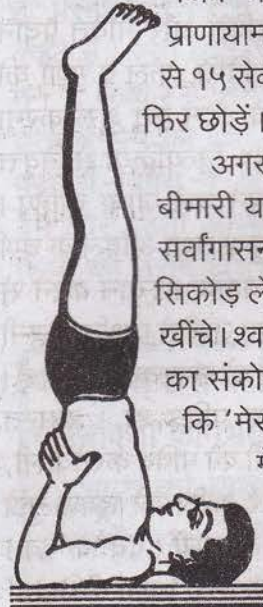 प्राणायाम
से १५ सेव
फिर छोड़ें।
अगर
बीमारी य
सर्वांगासन
सिकोड़ ले
खींचे। श्व
का संको
कि 'मेर